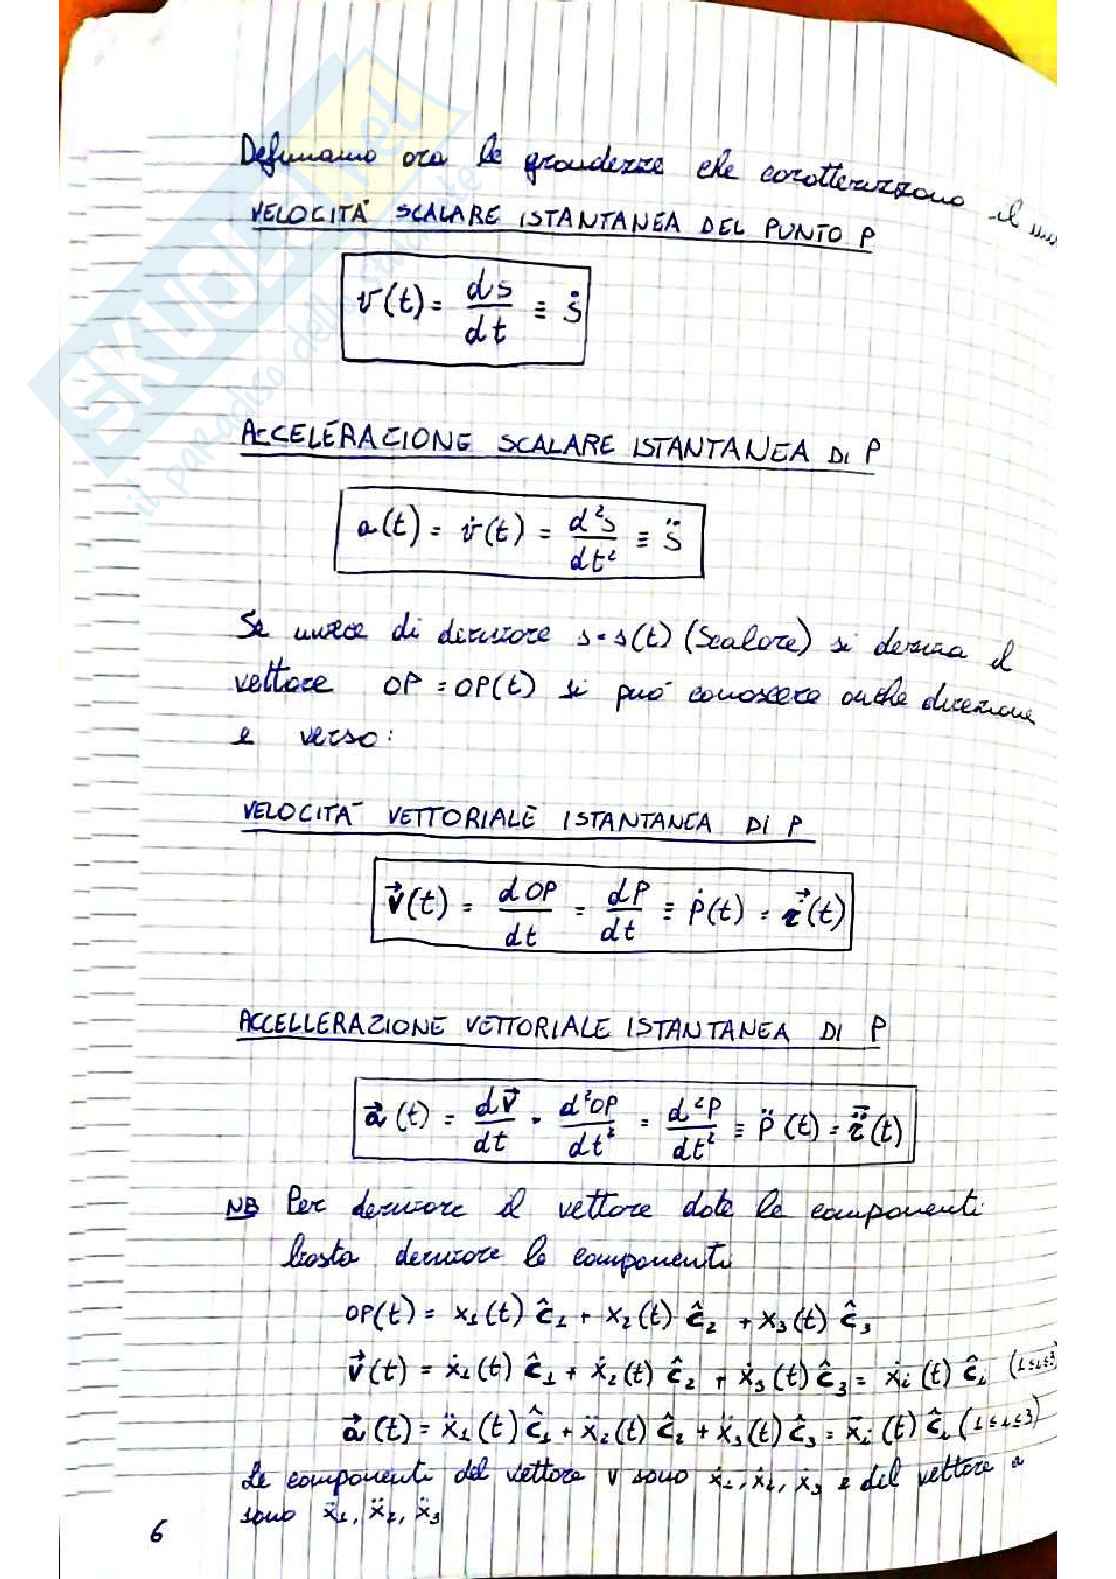 SKUOLA.net
il paradiso dello studente
Definiamo ora le grandezze che caratterizzano il
VELOCITÀ SCALARE ISTANTANEA DEL PUNTO P
v(t) = ds/dt ≡ ṡ
ACCELERAZIONE SCALARE ISTANTANEA DI P
a(t) = v̇(t) = d²s/dt² ≡ s̈
Se invece di derivare s=s(t) (scalare) si deriva il
vettore OP = OP(t) si può conoscere anche direzione
e verso:
VELOCITÀ VETTORIALE ISTANTANEA DI P
v⃗(t) = dOP/dt = dP/dt ≡ Ṗ(t) = r⃗(t)
ACCELLERAZIONE VETTORIALE ISTANTANEA DI P
a⃗(t) = dv⃗/dt = d²OP/dt² = d²P/dt² ≡ P̈(t) = r̈⃗(t)
NB Per derivare il vettore date le componenti
basta derivare le componenti
OP(t) = x₁(t) ĉ₁ + x₂(t) ĉ₂ + x₃(t) ĉ₃
v⃗(t) = ẋ₁(t) ĉ₁ + ẋ₂(t) ĉ₂ + ẋ₃(t) ĉ₃ = ẋᵢ(t) ĉᵢ (1≤i≤3)
a⃗(t) = ẍ₁(t) ĉ₁ + ẍ₂(t) ĉ₂ + ẍ₃(t) ĉ₃ = ẍᵢ(t) ĉᵢ (1≤i≤3)
Le componenti del vettore v sono ẋ₁, ẋ₂, ẋ₃ e del vettore a
sono ẍ₁, ẍ₂, ẍ₃
6